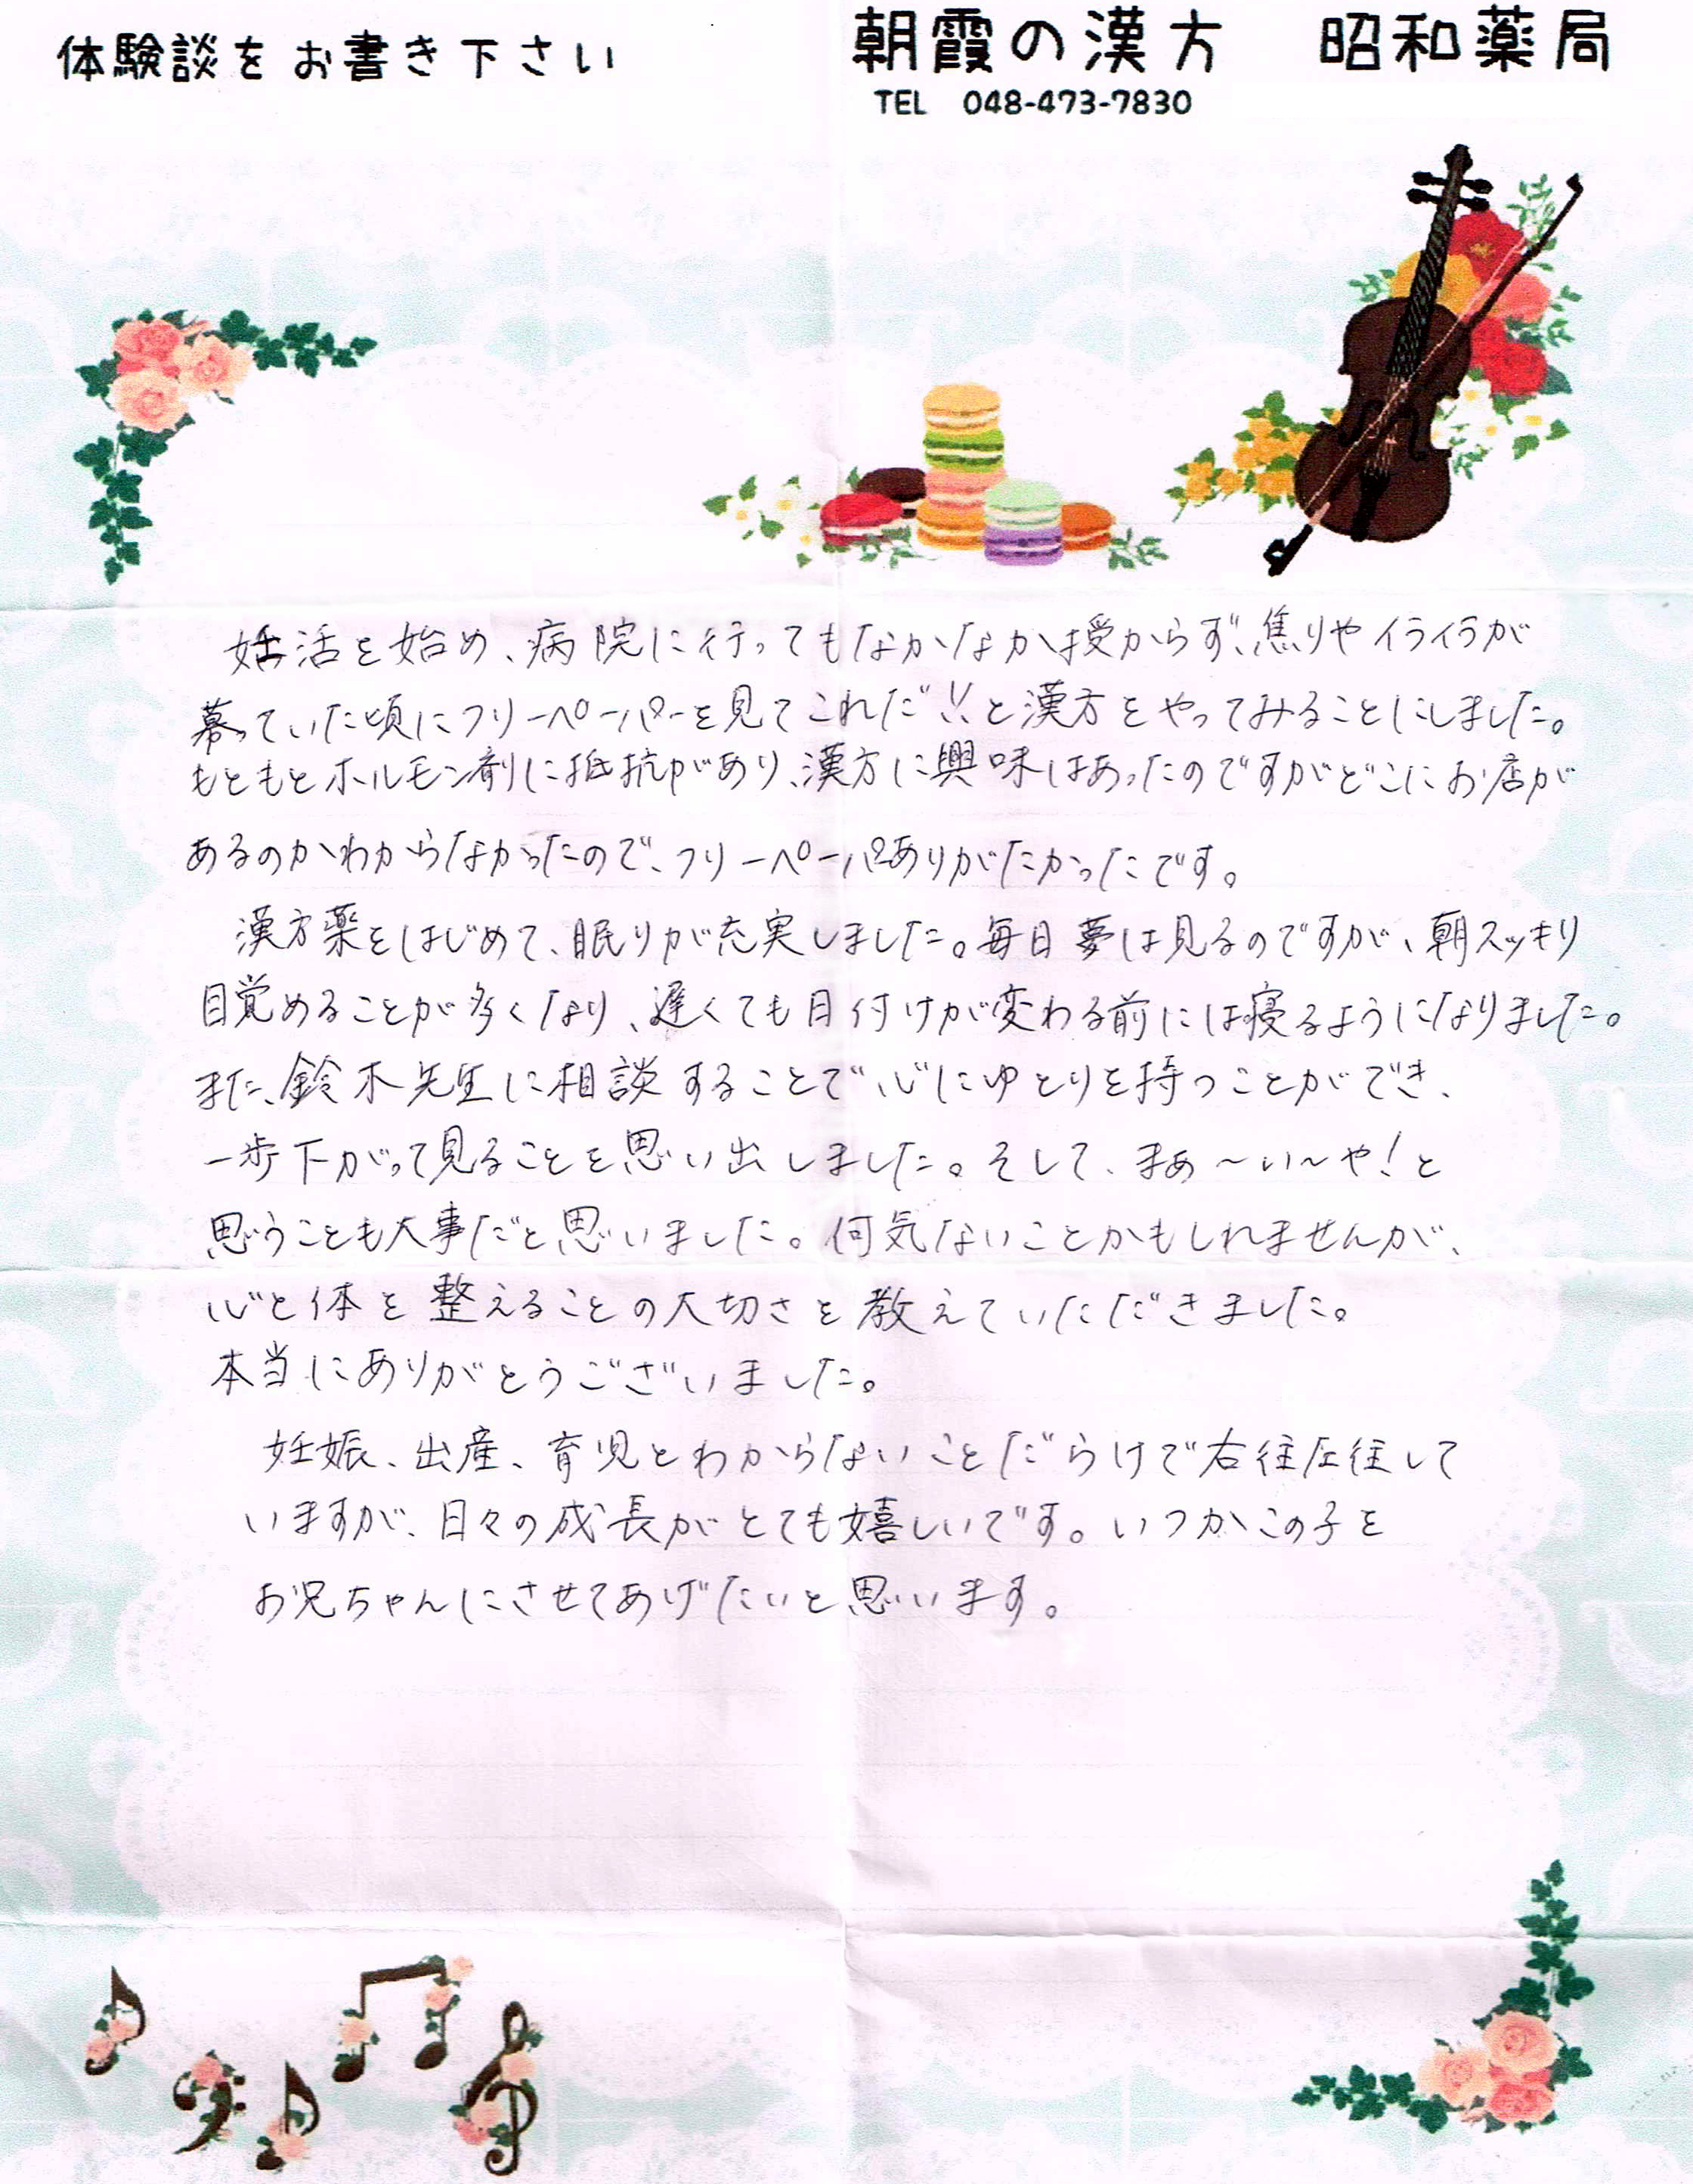 体験談をお書き下さい
朝霞の漢方　昭和薬局
TEL　048-473-7830
妊活を始め、病院に行ってもなかなか授からず、焦りやイライラが
募っていた頃にフリーペーパーを見てこれだ!!と漢方をやってみることにしました。
もともとホルモン剤に抵抗があり、漢方に興味はあったのですがどこにお店が
あるのかわからなかったので、フリーペーパーありがたかったです。
漢方薬をはじめて、眠りが充実しました。毎日夢は見るのですが、朝スッキリ
目覚めることが多くなり、遅くても日付けが変わる前には寝るようになりました。
また、鈴木先生に相談することで心にゆとりを持つことができ、
一歩下がって見ることを思い出しました。そして、まぁ〜い〜や!と
思うことも大事だと思いました。何気ないことかもしれませんが、
心と体を整えることの大切さを教えていただきました。
本当にありがとうございました。
妊娠、出産、育児とわからないことだらけで右往左往して
いますが、日々の成長がとても嬉しいです。いつかこの子を
お兄ちゃんにさせてあげたいと思います。